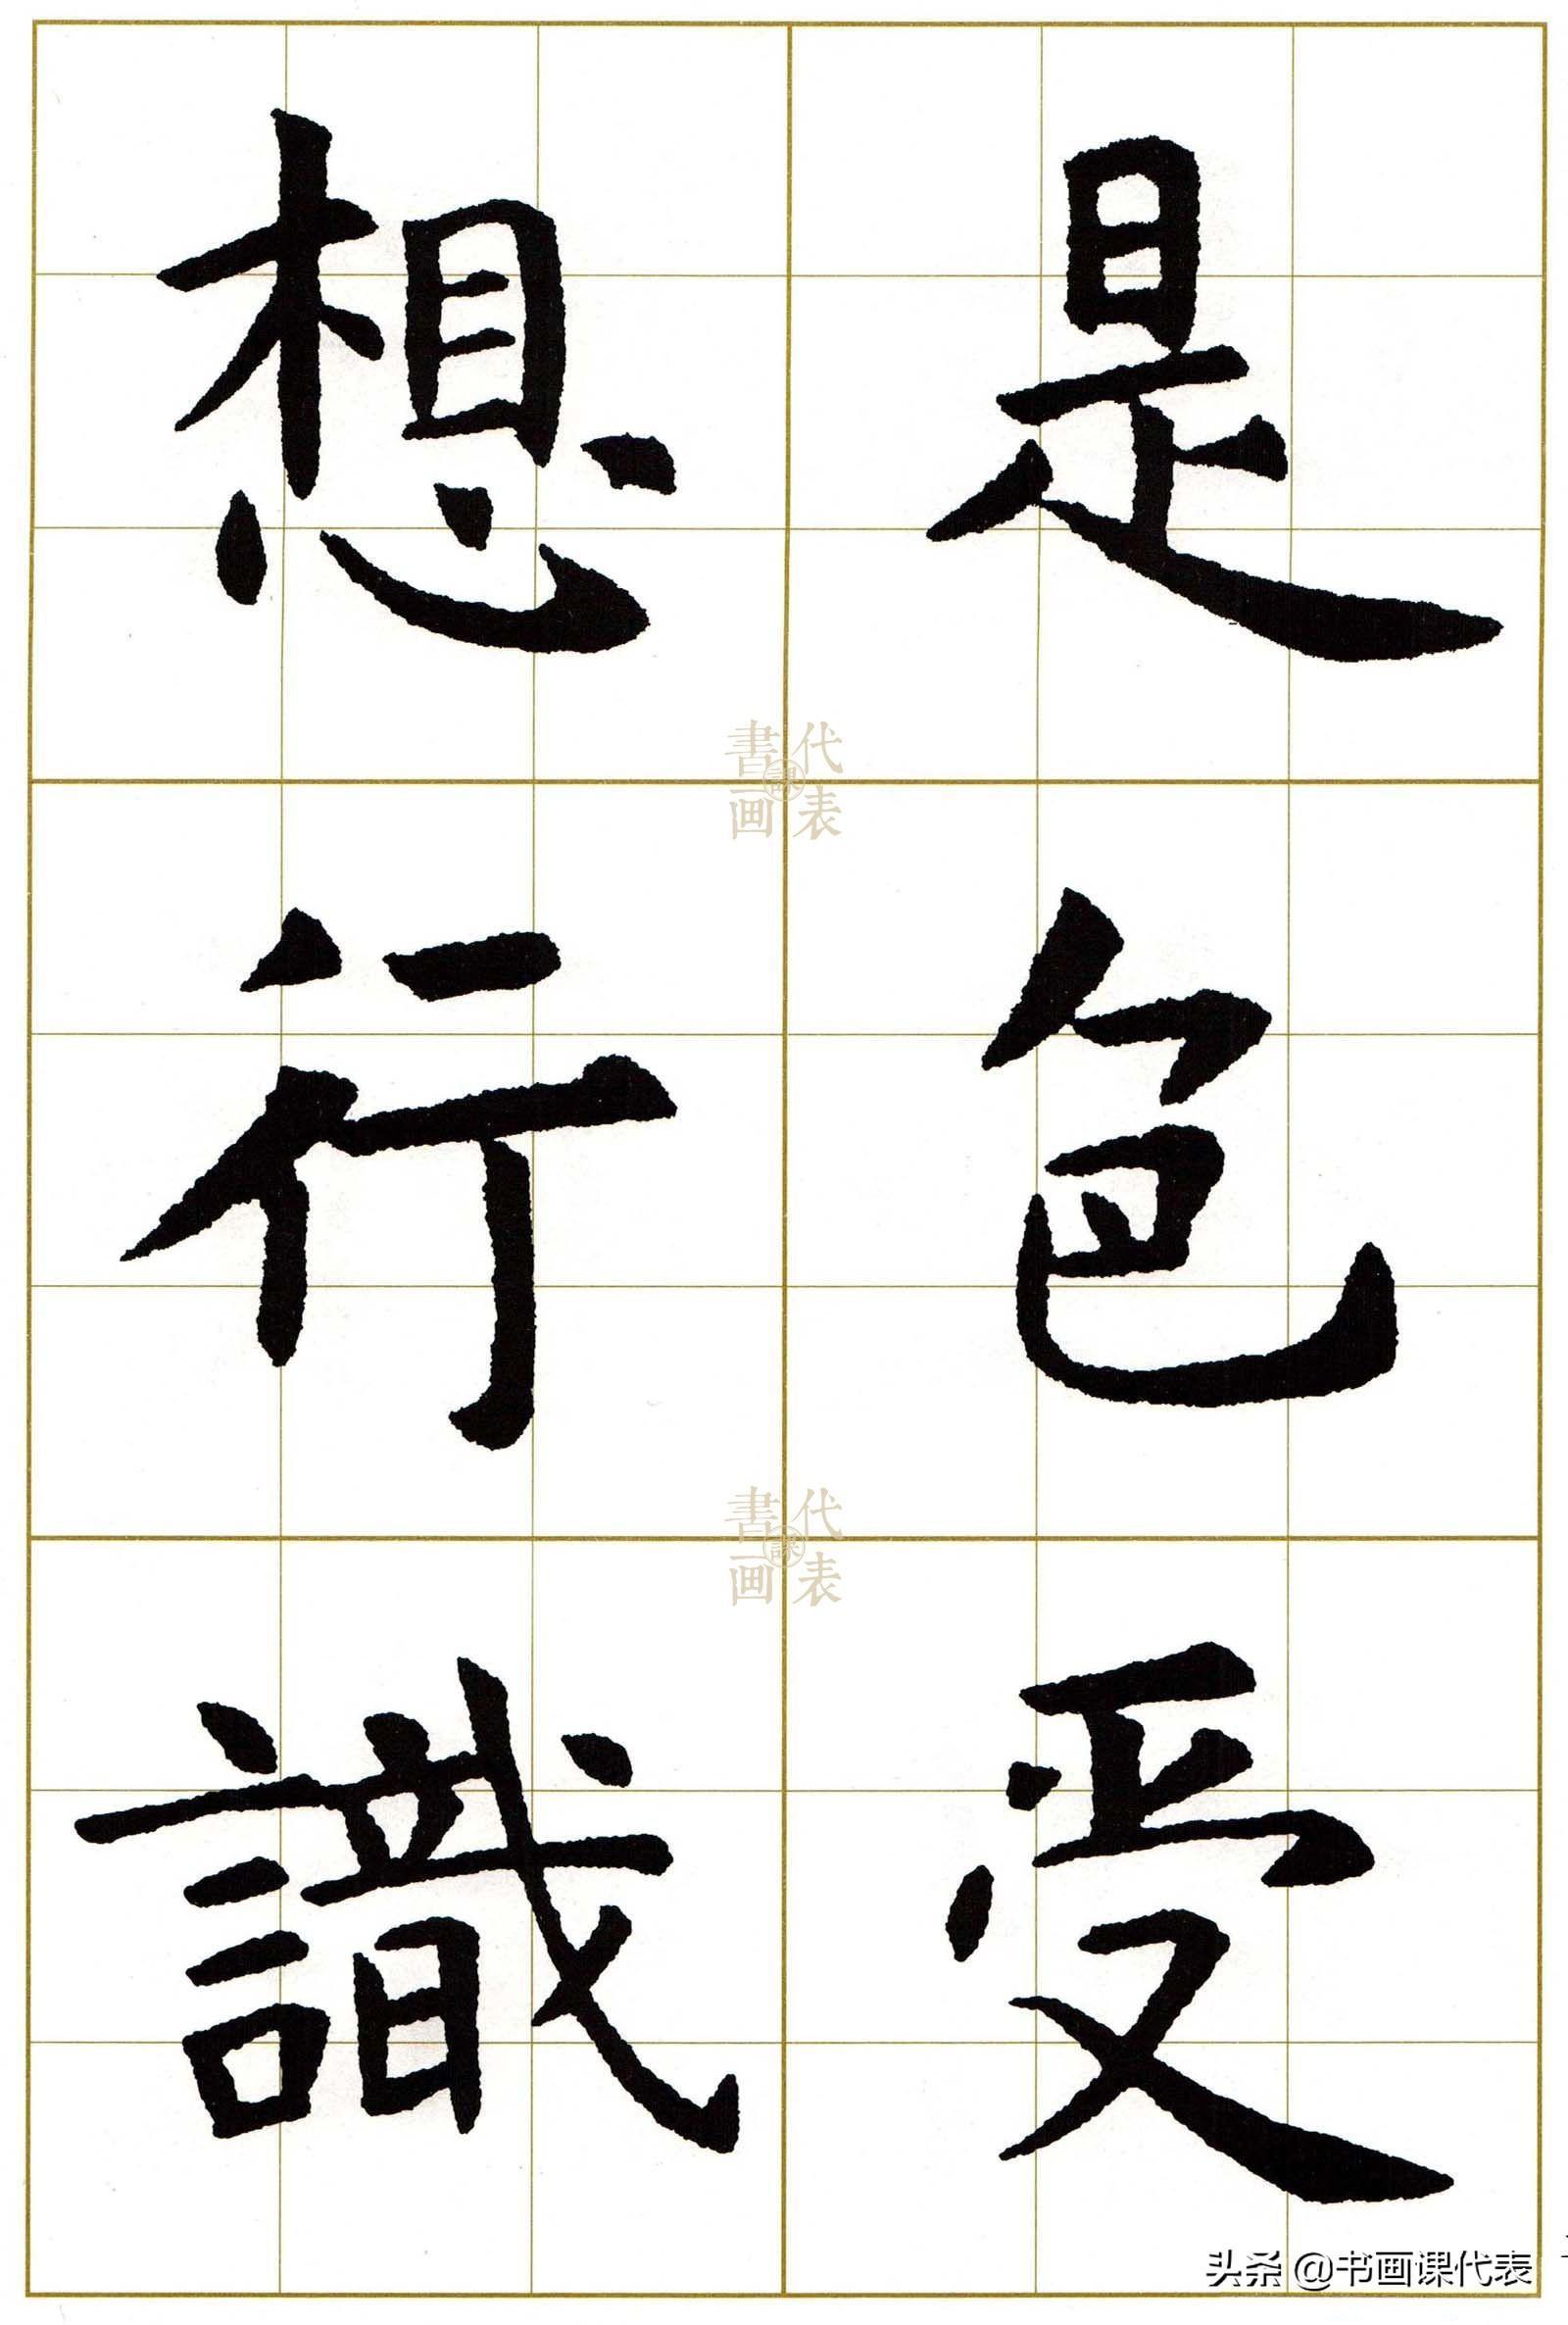 是色受
想行識
書画課代表
書画課代表
头条 @书画课代表